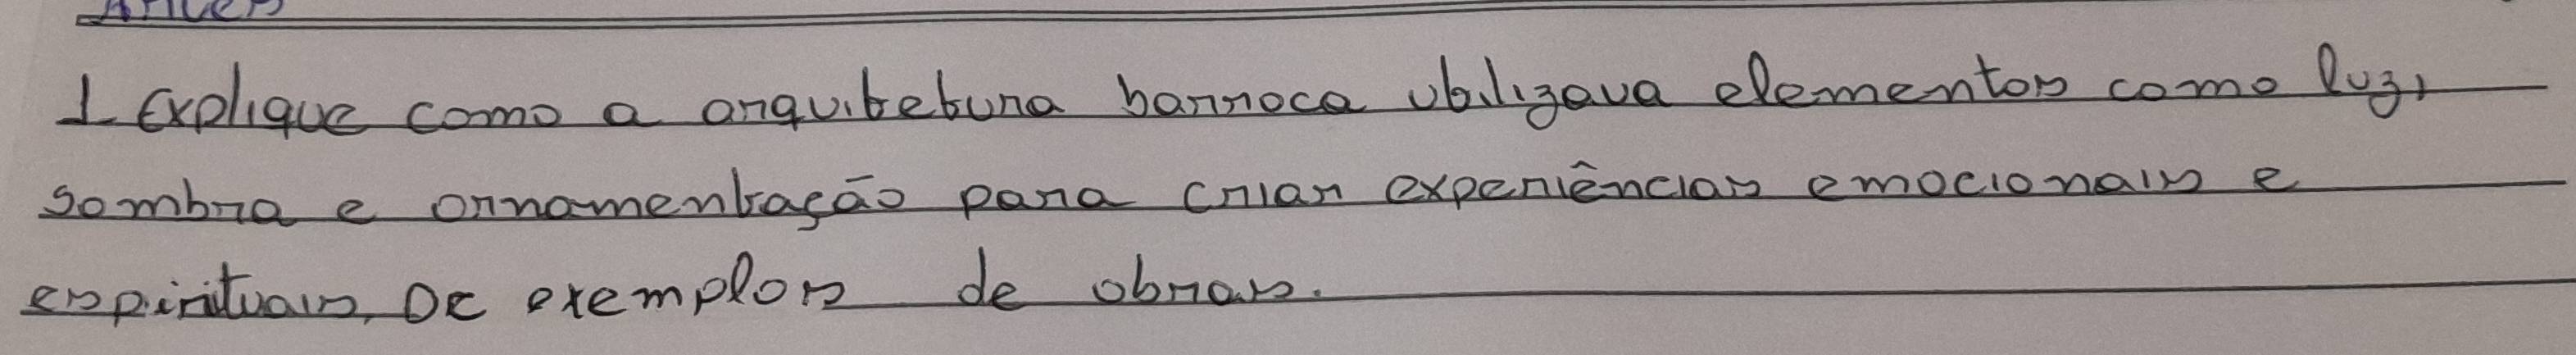 Artes
1 Explique como a arquitetura barroca utilizava elementos como luz,
sombra e ornamentação para criar experiências emocionais e
espirituais. De exemplos de obras.